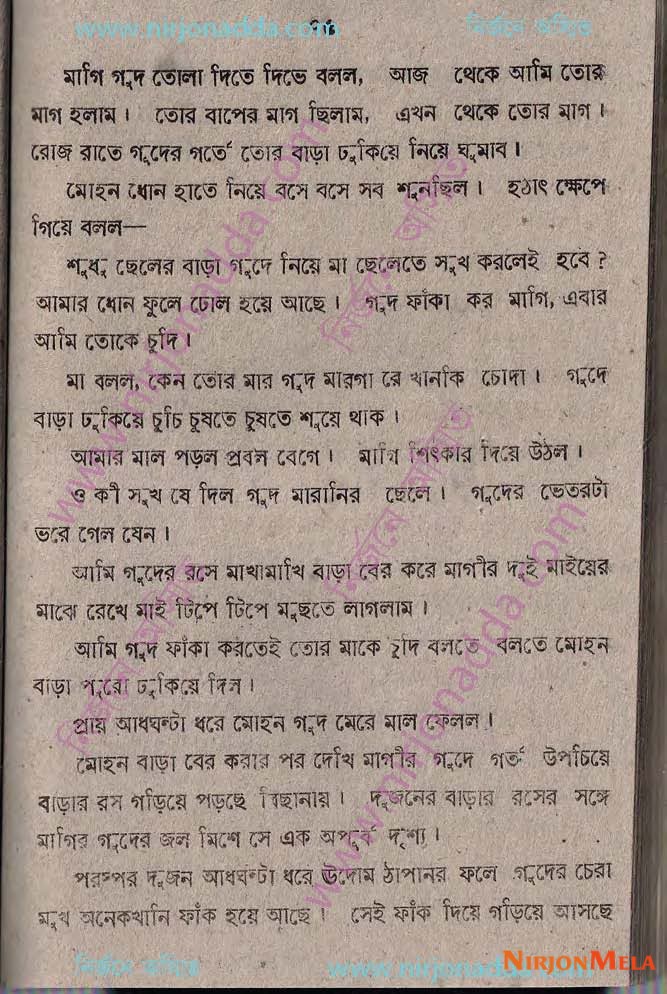 www.nirjonadda.com নির্জনে অসিত
মাগি গুদ তোলা দিতে দিতে বলল, আজ থেকে আমি তোর
মাগ হলাম। তোর বাপের মাগ ছিলাম, এখন থেকে তোর মাগ।
রোজ রাতে গুদের গর্তে তোর বাড়া ঢুকিয়ে নিয়ে ঘুমাব।
মোহন ধোন হাতে নিয়ে বসে বসে সব শুনছিল। হঠাৎ ক্ষেপে
গিয়ে বলল—
শুধু ছেলের বাড়া গুদে নিয়ে মা ছেলেতে সুখ করলেই হবে?
আমার ধোন ফুলে ঢোল হয়ে আছে। গুদ ফাঁকা কর মাগি, এবার
আমি তোকে চুদি।
মা বলল, কেন তোর মার গুদ মারগা রে খানকি চোদা। গুদে
বাড়া ঢুকিয়ে চুচি চুষতে চুষতে শুয়ে থাক।
আমার মাল পড়ল প্রবল বেগে। মাগি শিৎকার দিয়ে উঠল।
ও কী সুখ যে দিল গুদ মারানির ছেলে। গুদের ভেতরটা
ভরে গেল যেন।
আমি গুদের রসে মাখামাখি বাড়া বের করে মাগীর দুই মাইয়ের
মাঝে রেখে মাই টিপে টিপে মুছতে লাগলাম।
আমি গুদ ফাঁকা করতেই তোর মাকে চুদি বলতে বলতে মোহন
বাড়া পুরো ঢুকিয়ে দিল।
প্রায় আধঘন্টা ধরে মোহন গুদ মেরে মাল ফেলল।
মোহন বাড়া বের করার পর দেখি মাগীর গুদে গর্ত উপচিয়ে
বাড়ার রস গড়িয়ে পড়ছে বিছানায়। দুজনের বাড়ার রসের সঙ্গে
মাগির গুদের জল মিশে সে এক অপূর্ব দৃশ্য।
পরস্পর দুজন আধঘন্টা ধরে উদোম ঠাপানর ফলে গুদের চেরা
মুখ অনেকখানি ফাঁক হয়ে আছে। সেই ফাঁক দিয়ে গড়িয়ে আসছে
www.nirjonadda
NIRJONMELA